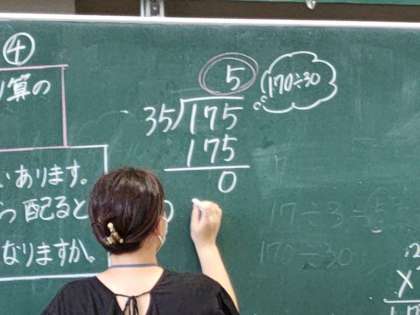 ④
算の
いあります。
つ配ると
なりますか。
5
35)175
175
0
170÷30
17÷3
170÷30
×